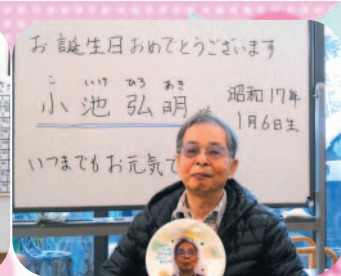 お誕生日おめでとうございます
こいけ ひろあき
小池弘明様
昭和17年
1月6日生
いつまでもお元気で